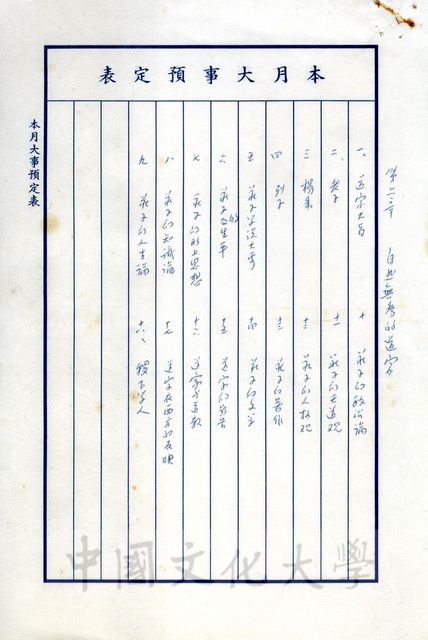 本月大事預定表
本月大事預定表
第六章 自然無為的道家
一、道家大旨
二、老子
三 楊朱
四 列子
五 莊子學說大要
六 莊子的生平
七 莊子的形上思想
八 莊子的知識論
九 莊子的人生論
十 莊子的政治論
十一 莊子的天道觀
十二 莊子的人物觀
十三 莊子的著作
十四 莊子的文字
十五 道家的影響
十六 道家與道教
十七 道家在西方的反映
十八、稷下學人
中國文化大學